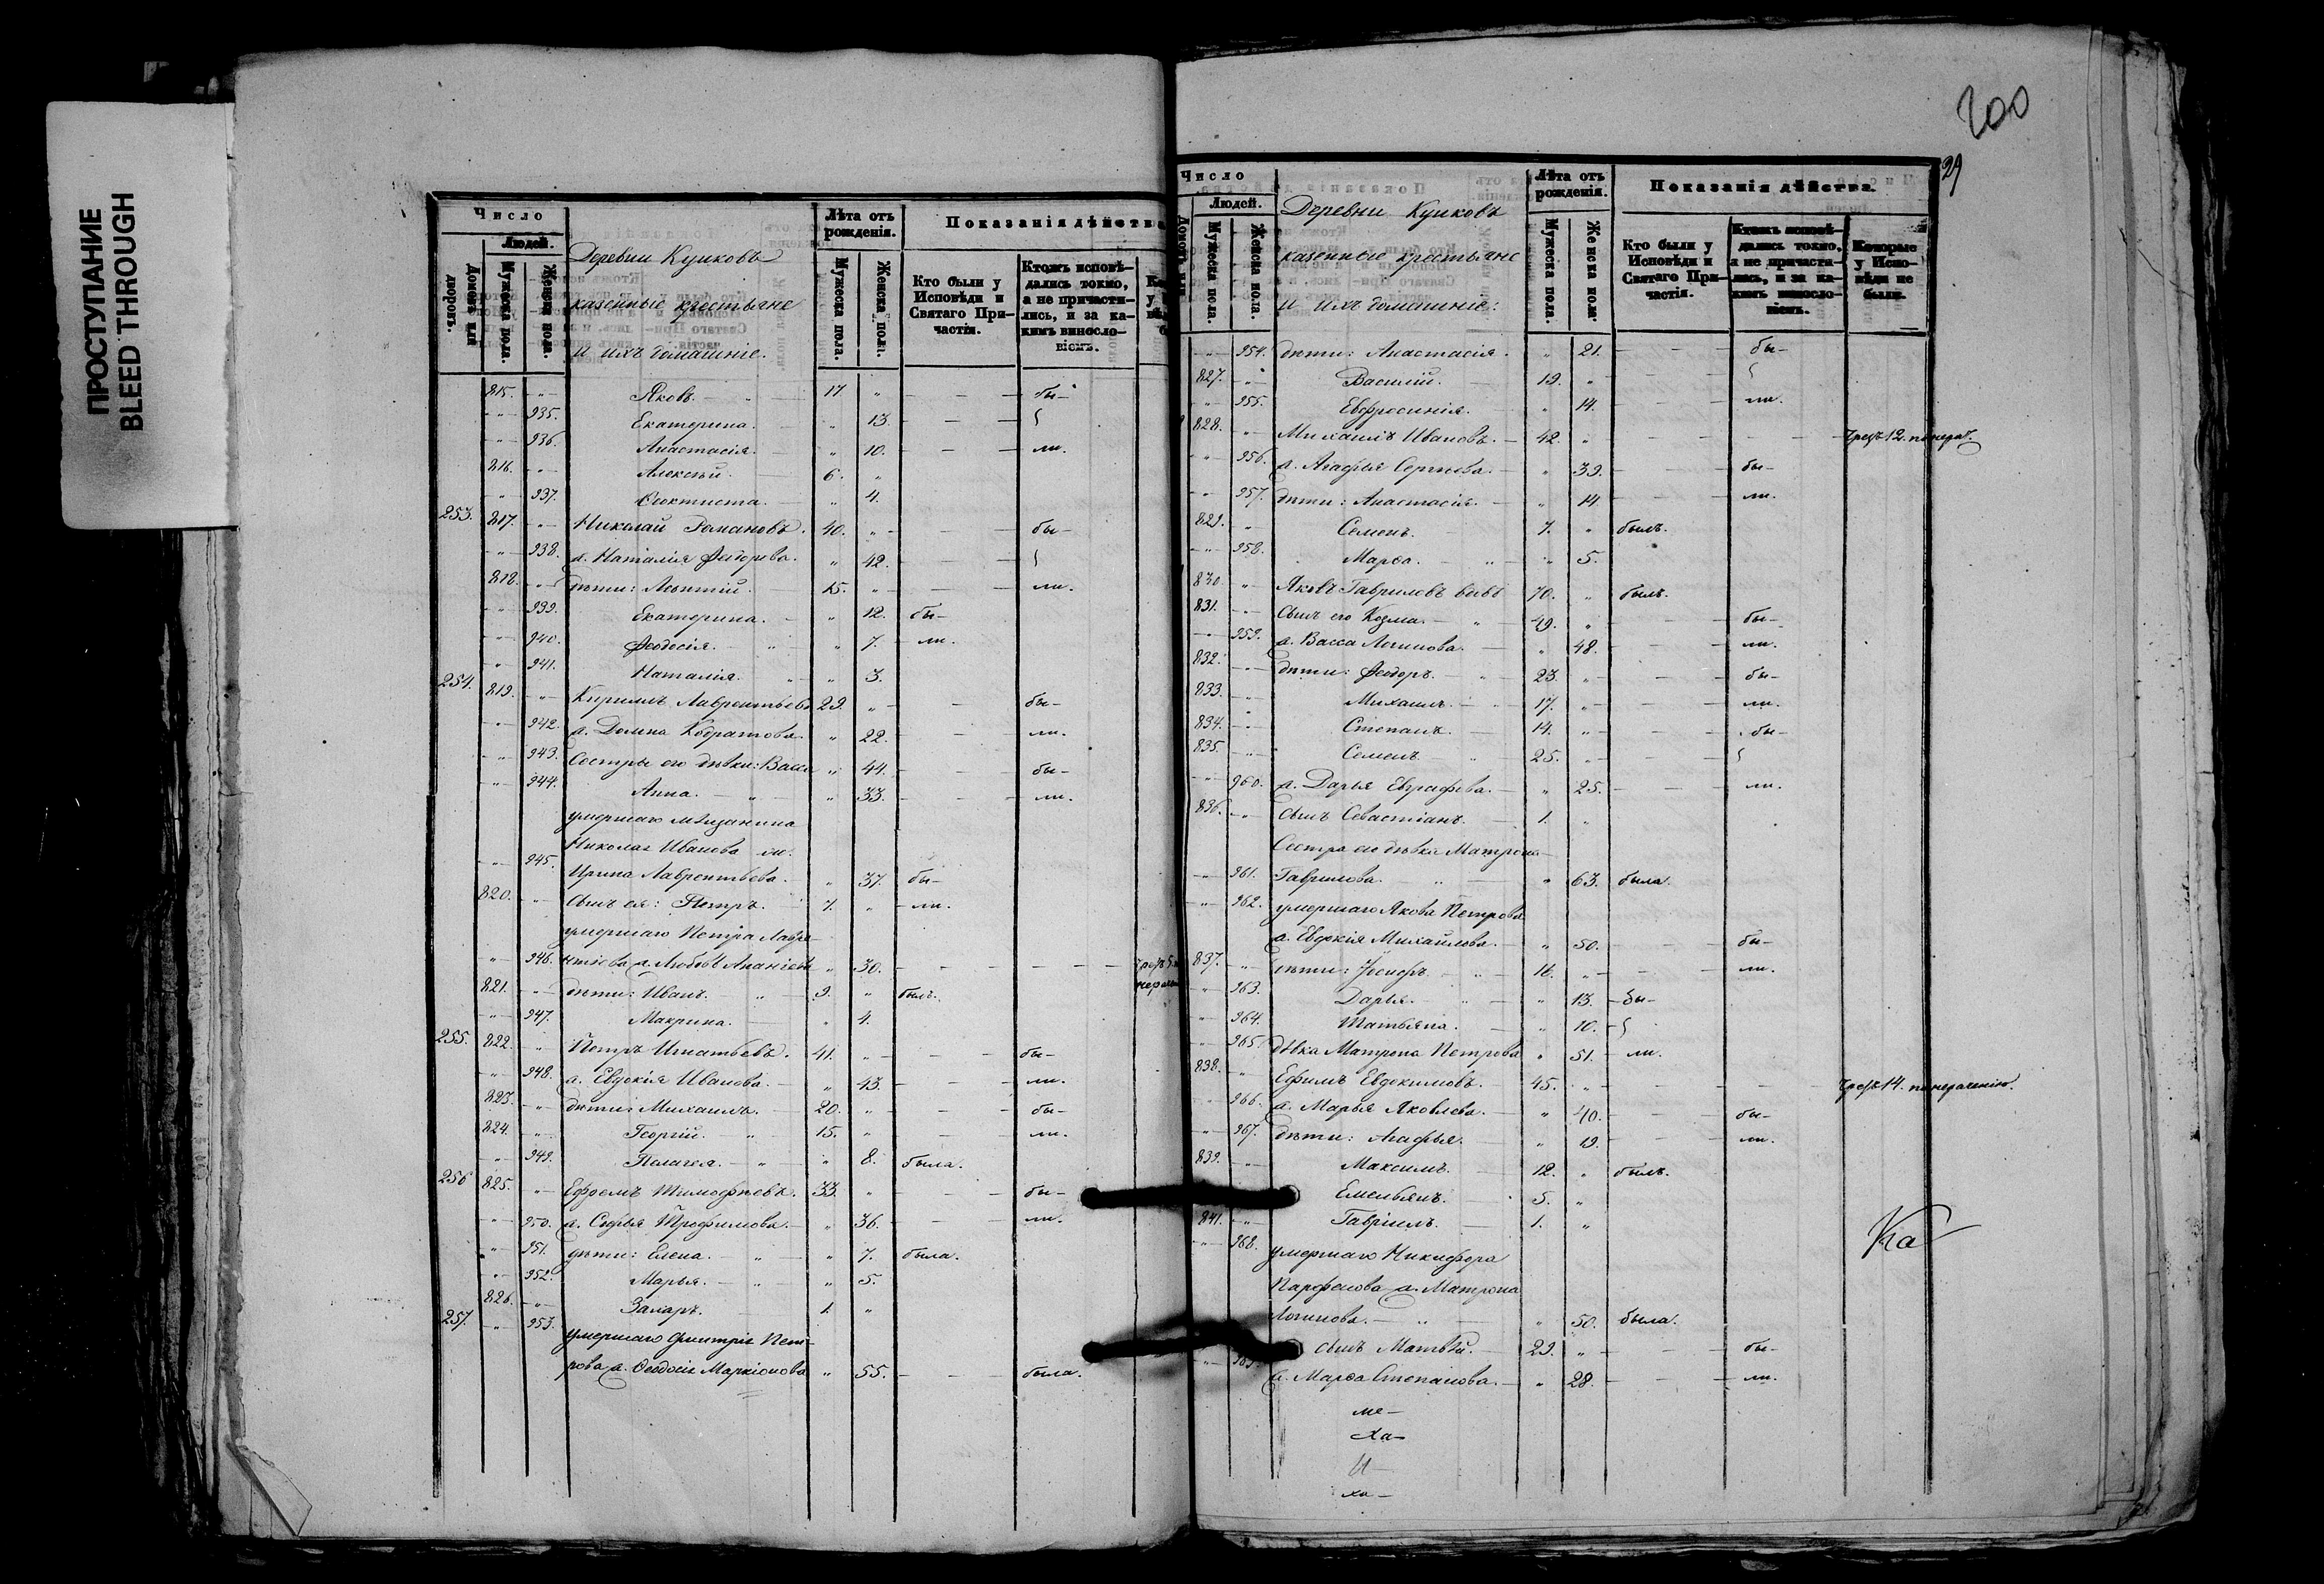 200
29
ПРОСТУПАНИЕ
BLEED THROUGH
Число
Лѣта отъ рожденія.
Показанія дѣйства
Людей.
Домовъ или дворовъ.
Мужеска пола.
Женска пола.
Деревни Кушковъ
казенные крестьяне
и ихъ домашніе.
Мужеска пола.
Женска пола.
Кто были у Исповѣди и Святаго Причастія.
Ктожъ исповѣдались токмо, а не причастились, и за какимъ винословіемъ.
815. Яковъ. 17. бы-
935. Екатерина. 13.
936. Анастасія. 10. ли.
816. Алексѣй. 6.
937. Ѳеоктиста. 4.
253. 817. Николай Романовъ. 40. бы-
938. ж. Наталія Ѳедорова. 42.
818. дѣти: Леонтій. 15. ли.
939. Екатерина. 12. бы-
940. Ѳеодосія. 7. ли.
941. Наталія. 3.
254. 819. Кириллъ Лаврентьевъ 29. бы-
942. ж. Домна Кодратова. 22. ли.
943. Сестры его дѣвки: Васса 44. бы-
944. Анна. 33. ли.
умершаго мѣщанина
Николая Иванова
945. Ирина Лаврентьева. 37. бы-
820. сынъ ея: Петръ. 7. ли.
умершаго Петра Лавре-
946. нтіева ж. Любовь 30.
821. дѣти: Иванъ. 9. былъ.
947. Макрина. 4.
255. 822. Петръ Игнатьевъ. 41. бы-
948. ж. Евдокія Иванова. 43. ли.
823. дѣти: Михаилъ. 20. бы-
824. Георгій. 15. ли.
949. Пелагея. 8. была.
256 825. Ефремъ Тимофѣевъ. 33. бы-
950. ж. Софья Трофимова. 36. ли.
951. дѣти: Елена. 7. была.
952. Марья. 5.
826. Захаръ. 1.
257. 953. умершаго Дмитрія Пет-
рова ж. Ѳеодосія Маркіонова 55. была.
Число
Лѣта отъ рожденія.
Показанія дѣйства.
Людей.
Мужеска пола.
Женска пола.
Деревни Кушковъ
казенные крестьяне
и ихъ домашніе:
Мужеска пола.
Женска пола.
Кто были у Исповѣди и Святаго Причастія.
Ктожъ исповѣдались токмо, а не причастились, и за какимъ винословіемъ.
Которые у Исповѣди не были.
954. дѣти: Анастасія. 21. бы-
827. Василій. 19.
955. Евфросинія. 14. ли.
828. Михаилъ Ивановъ. 42. чрезъ 12. по нерад.
956. ж. Агафья Сергѣева. 39. бы-
957. дѣти: Анастасія. 14. ли.
829. Семенъ. 7. былъ.
958. Марѳа. 5.
830. Яковъ Гавриловъ вдовъ 70. былъ.
831. Сынъ его Козма. 49. бы-
959. ж. Васса Логинова. 48. ли.
832. дѣти: Ѳедоръ. 23. бы-
833. Михаилъ. 17. ли.
834. Степанъ. 14. бы-
835. Семенъ. 25.
960. ж. Дарья Евграфова. 25. ли.
836. сынъ Севастіанъ. 1.
Сестра его дѣвка Матрона
961. Гаврилова. 63. была.
962. умершаго Якова Петрова
ж. Евдокія Михайлова. 50. бы-
837. дѣти: Іосифъ. 16. ли.
963. Дарья. 13. бы-
964. Татьяна. 10.
965. дѣвка Матрона Петрова 51. ли.
838. Ефимъ Евдокимовъ. 45. чрезъ 14. по нерадению.
966. ж. Марья Яковлева. 40. бы-
967. дѣти: Агафья. 19. ли.
839. Максимъ. 12. былъ.
Емельянъ. 5.
841. Гавріилъ. 1.
968. умершаго Никифора
Парфенова ж. Матрона
Логинова. 50. была.
сынъ Матвѣй. 29. бы-
969. ж. Марѳа Степанова. 28. ли.
Ка